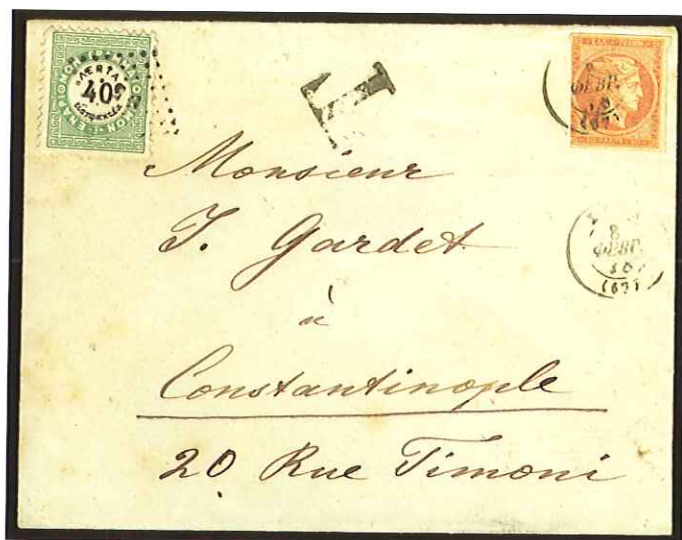 ΛΕΠΤΑ
40
T
ΦΕΒΡ.
(67)
Monsieur
J. Gardet
à
Constantinople
20 Rue Timoni
8
ΦΕΒΡ.
(67)